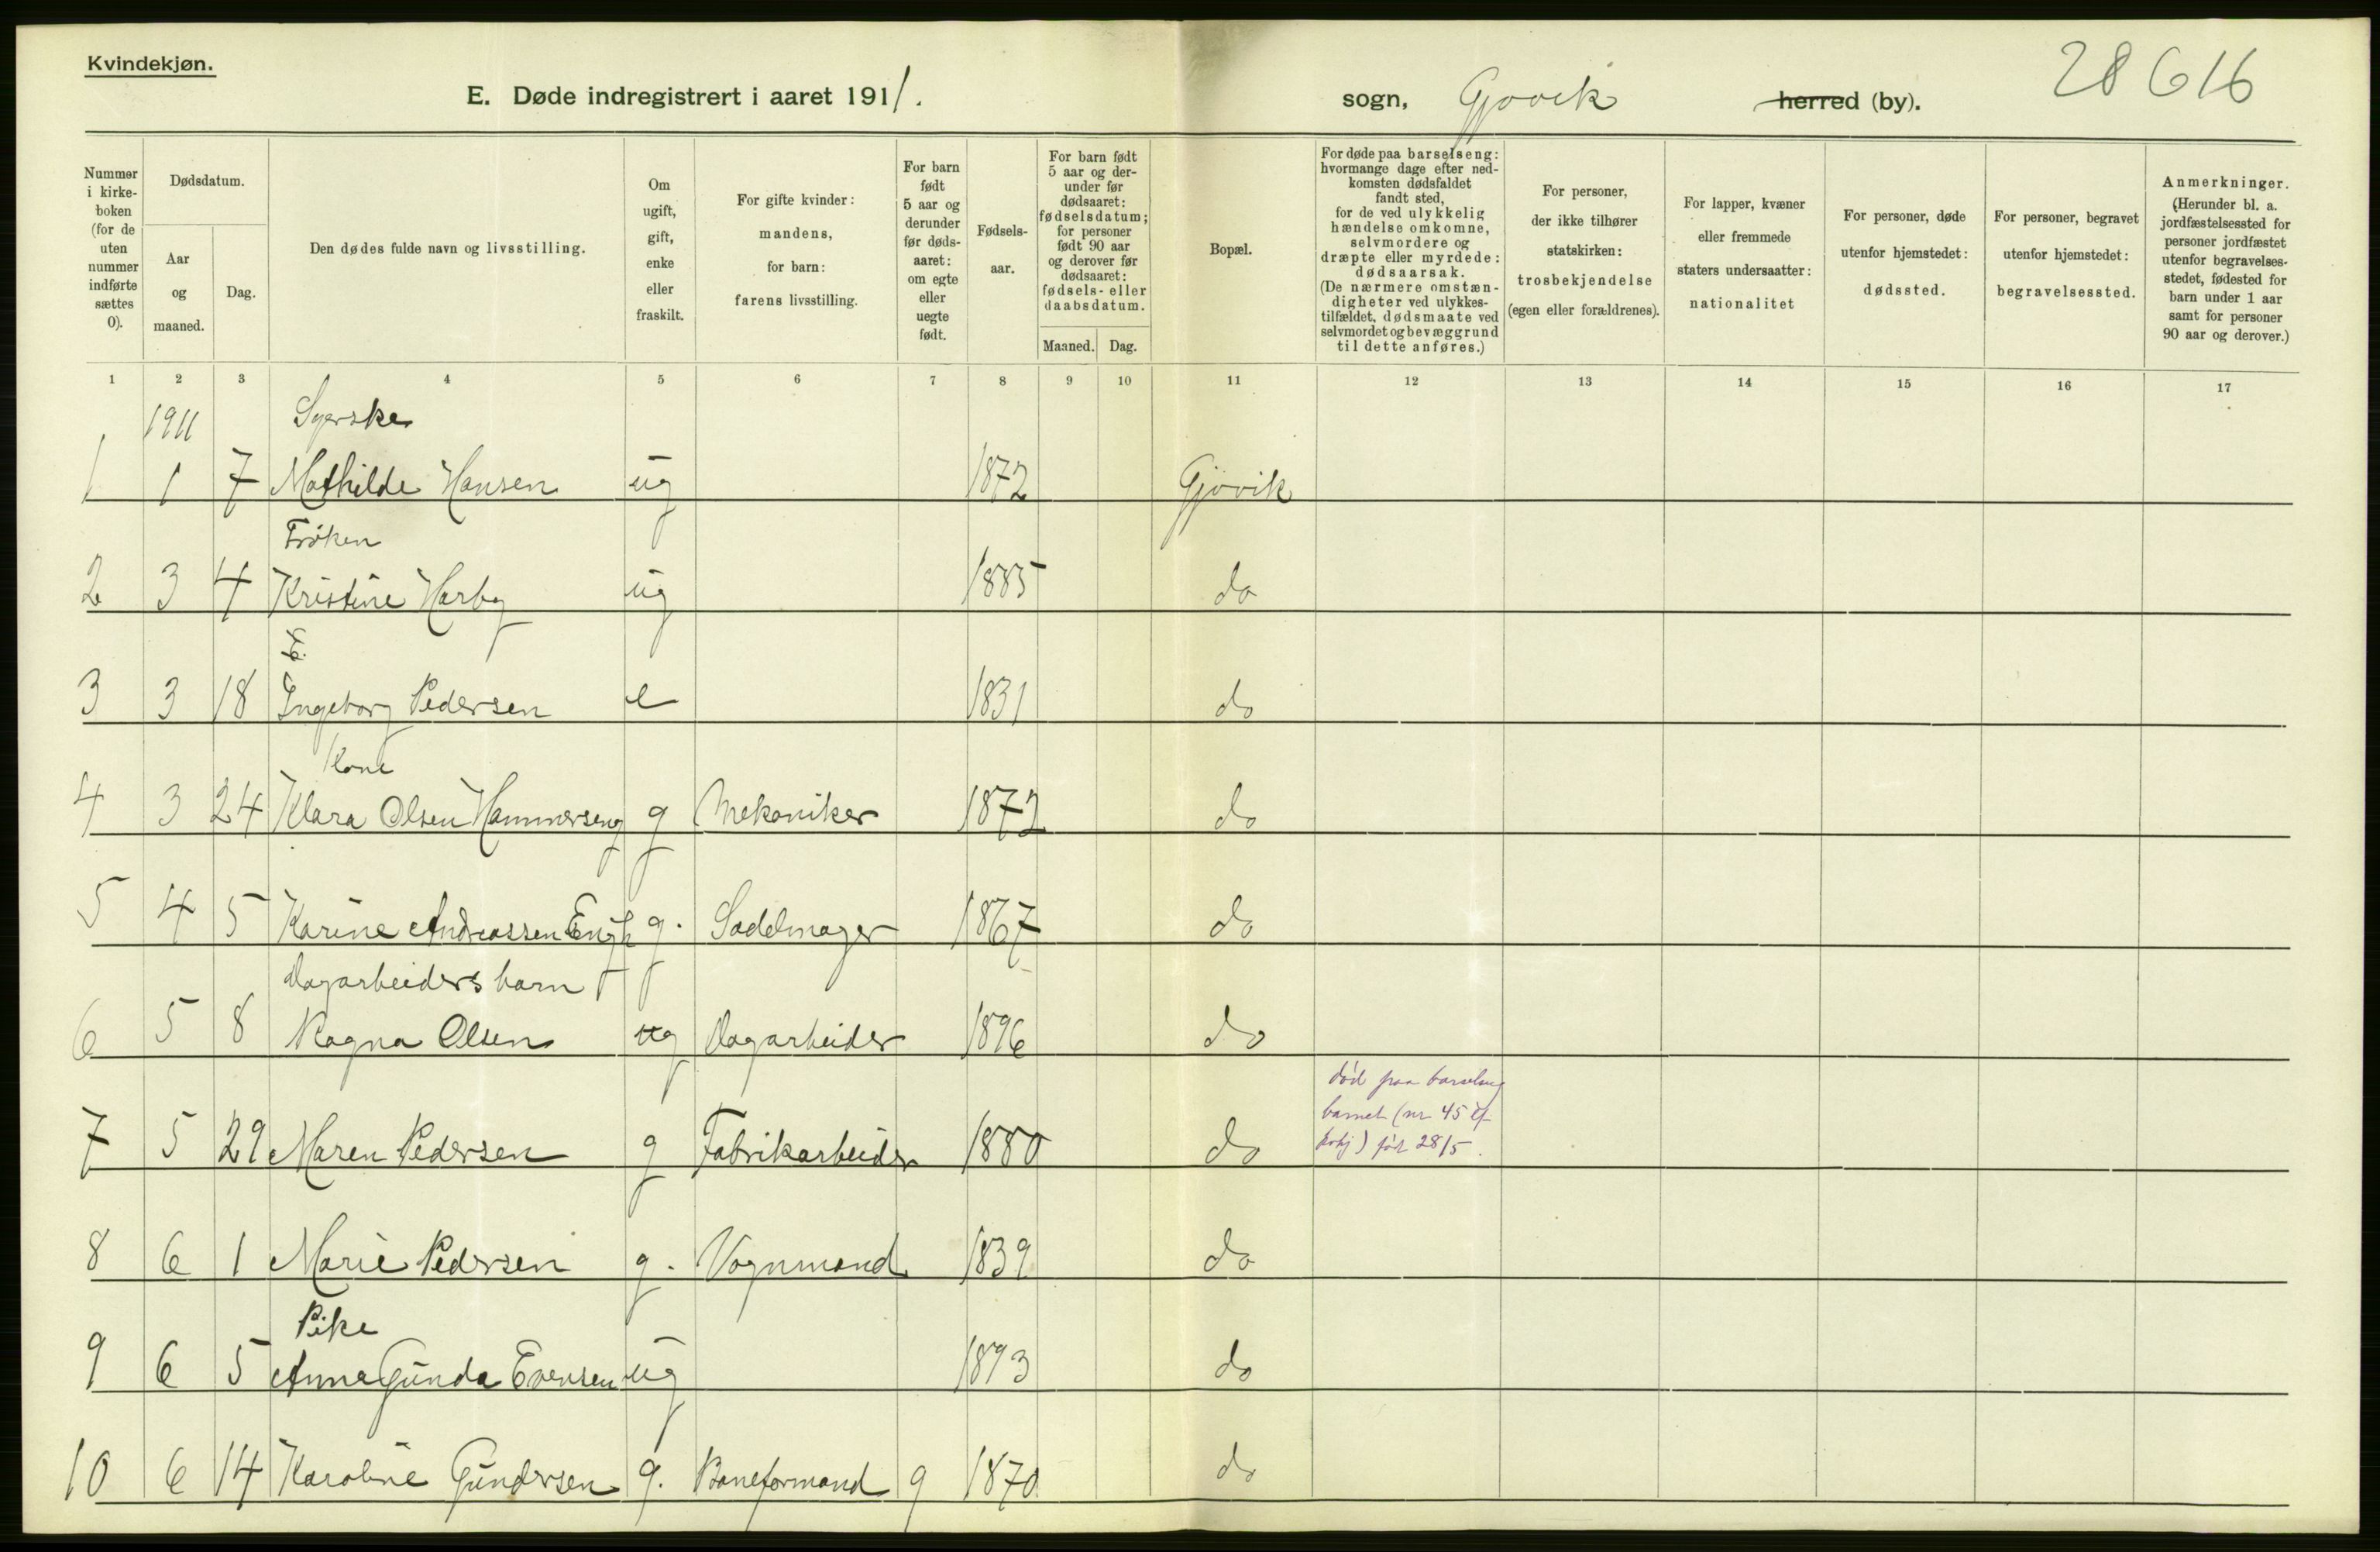 Kvindekjøn.
E. Døde indregistrert i aaret 1911.
sogn, Gjøvik herred (by).
28 616
Nummer i kirkeboken (for de uten nummer indførte sættes 0).
Dødsdatum.
Aar og maaned.
Dag.
Den dødes fulde navn og livsstilling.
Om ugift, gift, enke eller fraskilt.
For gifte kvinder: mandens, for barn: farens livsstilling.
For barn født 5 aar og derunder før dødsaaret: om egte eller uegte født.
Fødselsaar.
For barn født 5 aar og derunder før dødsaaret: fødselsdatum; for personer født 90 aar og derover før dødsaaret: fødsels- eller daabsdatum.
Maaned. Dag.
Bopæl.
For døde paa barselseng: hvormange dage efter nedkomsten dødsfaldet fandt sted, for de ved ulykkelig hændelse omkomne, selvmordere og dræpte eller myrdede: dødsaarsak. (De nærmere omstændigheter ved ulykkestilfældet, dødsmaate ved selvmordet og bevæggrund til dette anføres.)
For personer, der ikke tilhører statskirken: trosbekjendelse (egen eller forældrenes).
For lapper, kvæner eller fremmede staters undersaatter: nationalitet
For personer, døde utenfor hjemstedet: dødssted.
For personer, begravet utenfor hjemstedet: begravelsessted.
Anmerkninger. (Herunder bl. a. jordfæstelsessted for personer jordfæstet utenfor begravelsesstedet, fødested for barn under 1 aar samt for personer 90 aar og derover.)
1 2 3 4 5 6 7 8 9 10 11 12 13 14 15 16 17
1911 Syerske
1 1 7 Mathilde Hansen ug 1872 Gjøvik
Frøken
2 3 4 Kristine Harby ug 1885 do
E.
3 3 18 Ingeborg Pedersen e 1831 do
Kone
4 3 24 Klara Olsen Hammerseng g Mekaniker 1872 do
5 4 5 Karine Andreassen Engh g. Sadelmager 1867 do
Dagarbeiders barn
6 5 8 Ragna Olsen ug Dagarbeider 1896 do
død paa barselseng
barnet (nr 45
) født 28/5.
7 5 29 Maren Pedersen g Fabrikarbeider 1880 do
8 6 1 Marie Pedersen g. Vognmand 1839 do
Pike
9 6 5 Anna Gunda Evensen ug 1893 do
10 6 14 Karoline Gundersen g. Baneformand g 1870 do